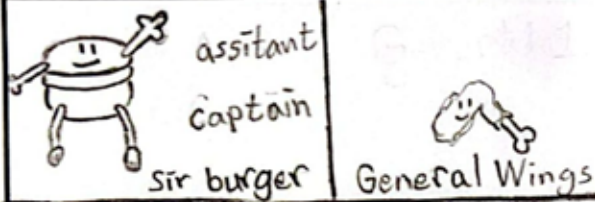 assitant
captain
sir burger
General Wings